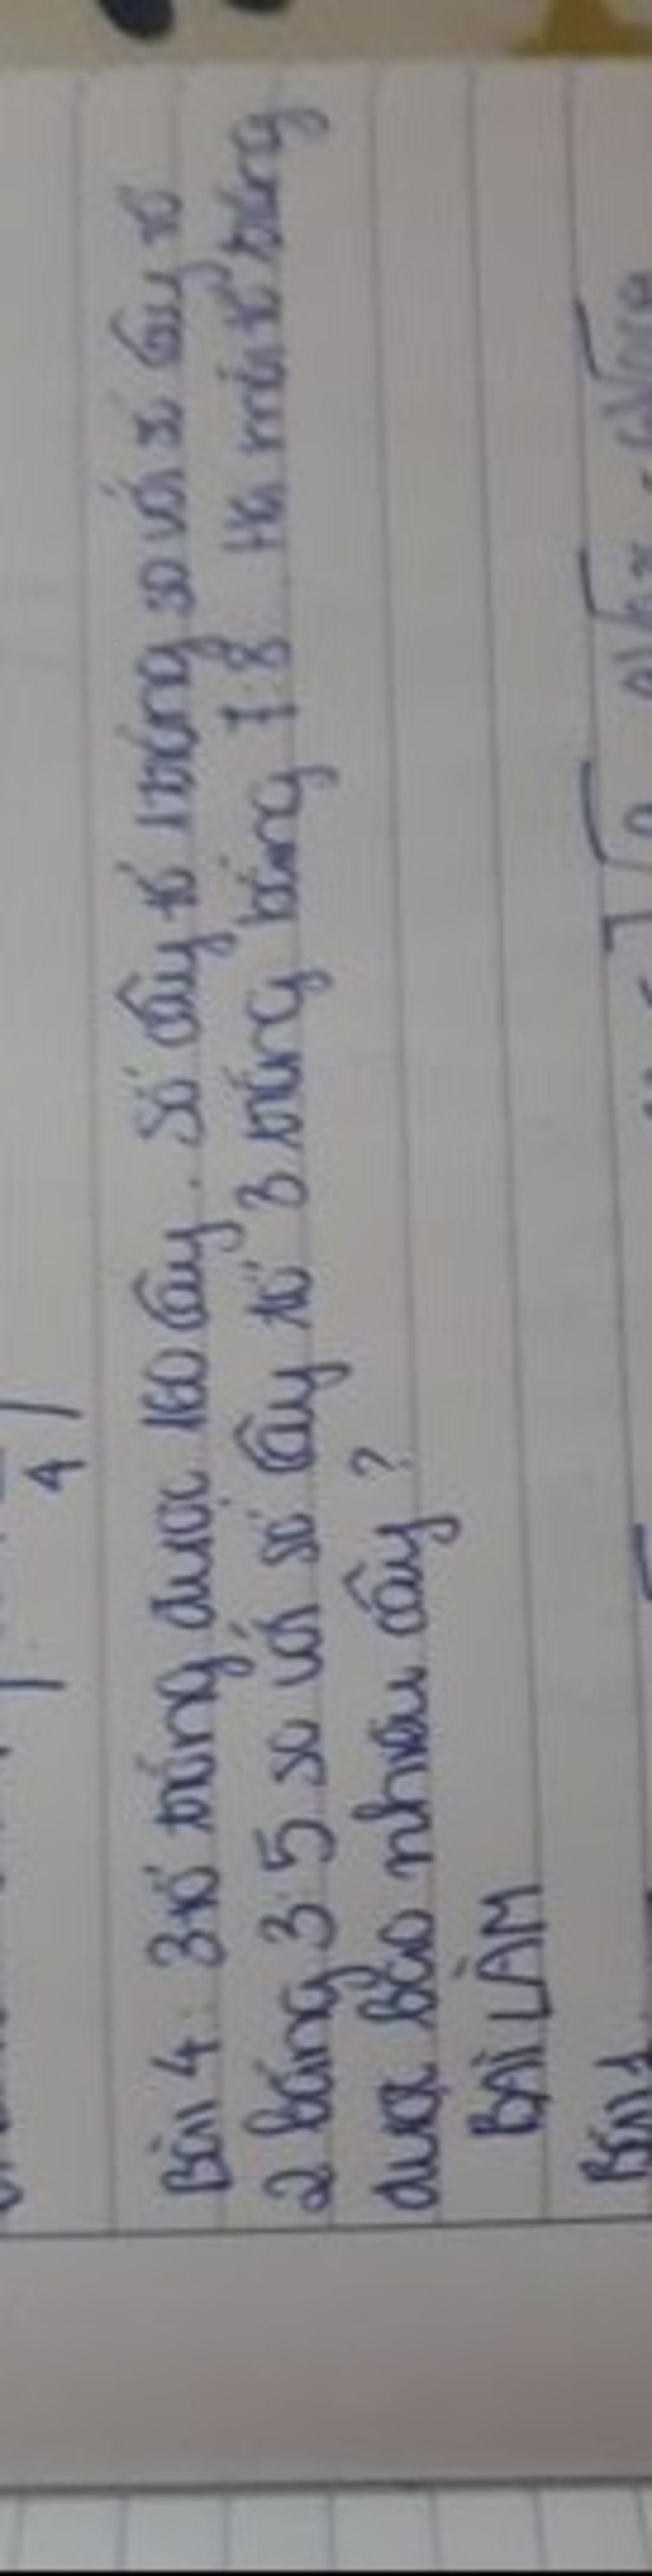 4
Bài 4: 3 tổ trồng được 160 cây. Số cây tổ 1 trồng so với số cây tổ
2 bằng 3:5 so với số cây tổ 3 trồng bằng 7:8. Hỏi mỗi tổ trồng
được bao nhiêu cây?
BÀI LÀM
Bài 1